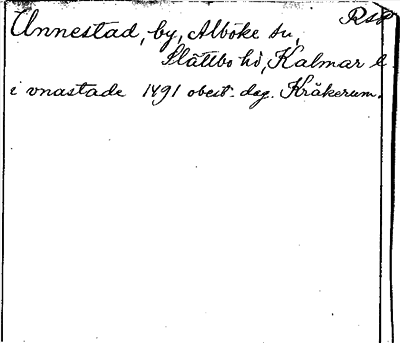 RSP
Unnestad, by, Alböke sn,
Slättbo hd, Kalmar l.
i vnastade 1491 obest. dag. Kråkerum.